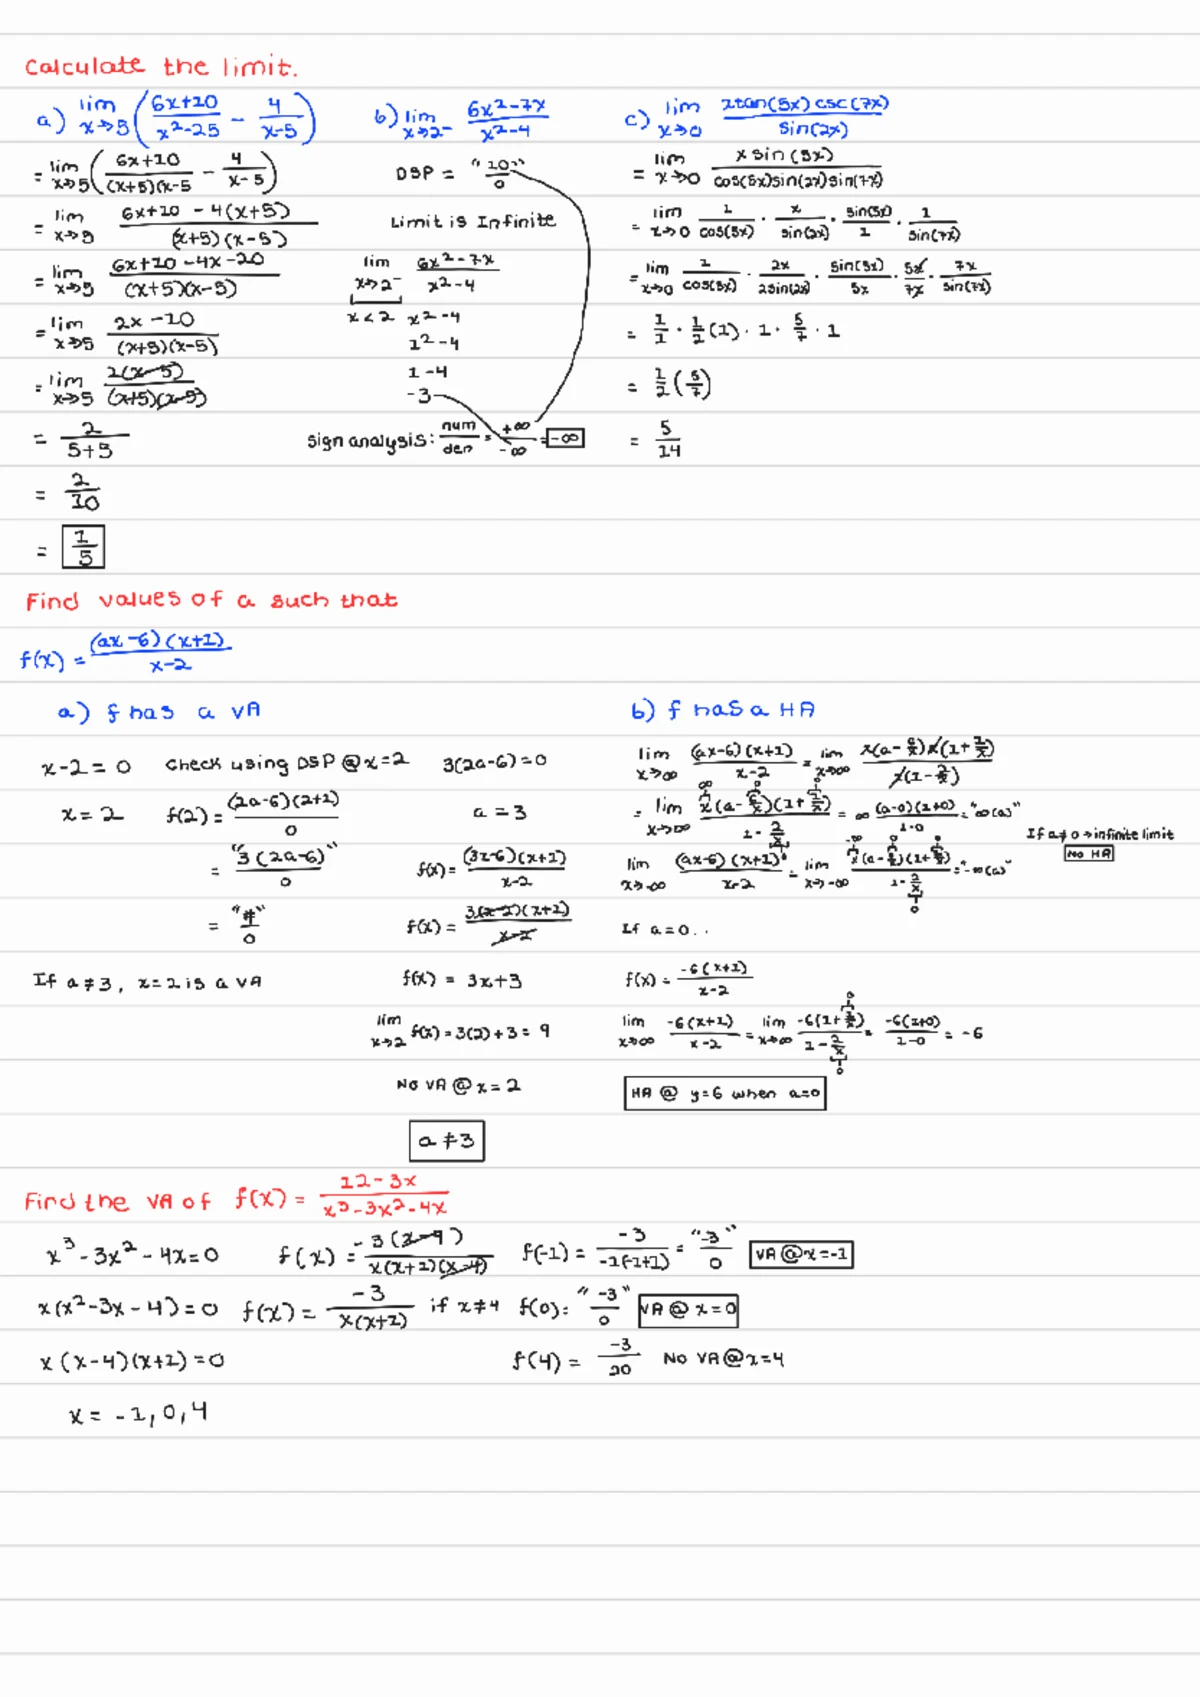 Calculate the limit.
a) lim x→5 ( (6x+10)/(x²-25) - 4/(x-5) )
= lim x→5 ( (6x+10)/((x+5)(x-5) - 4/(x-5) )
= lim x→5 (6x+10 - 4(x+5))/((x+5)(x-5))
= lim x→5 (6x+10-4x-20)/((x+5)(x-5))
= lim x→5 (2x-10)/((x+5)(x-5))
= lim x→5 2(x-5)/((x+5)(x-5))
= 2/(5+5)
= 2/10
= 1/5
b) lim x→2⁻ (6x²-7x)/(x²-4)
DSP = "10"/0
Limit is Infinite
lim x→2⁻ (6x²-7x)/(x²-4)
x<2 x²-4
1²-4
1-4
-3
sign analysis: num/den = +∞/-∞ = -∞
c) lim x→0 (xtan(5x) csc(7x))/sin(2x)
= lim x→0 (x sin(5x))/(cos(5x)sin(2x)sin(7x))
= lim x→0 1/cos(5x) · x/sin(2x) · sin(5x)/1 · 1/sin(7x)
= lim x→0 1/cos(5x) · 2x/2sin(2x) · sin(5x)/5x · 5x/7x · 7x/sin(7x)
= 1/1 · 1/2 (1) · 1 · 5/7 · 1
= 1/2 (5/7)
= 5/14
Find values of a such that
f(x) = (ax-6)(x+1)/(x-2)
a) f has a VA
x-2=0 Check using DSP @x=2 3(2a-6)=0
x=2 f(2) = (2a-6)(2+1)/0 a=3
= "3(2a-6)"/0 f(x) = (3x-6)(x+1)/(x-2)
= "#"/0 f(x) = 3(x-2)(x+1)/(x-2)
If a≠3, x=2 is a VA f(x) = 3x+3
lim x→2 f(x) = 3(2)+3 = 9
No VA @ x=2
a≠3
b) f has a HA
lim x→∞ (ax-6)(x+1)/(x-2) = lim x→∞ x(a-6/x)x(1+1/x)/x(1-2/x)
= lim x→∞ x(a-6/x)(1+1/x)/(1-2/x) = ∞ (a-0)(1+0)/(1-0) = "∞(a)"
If a≠0 → infinite limit
No HA
lim x→-∞ (ax-6)(x+1)/(x-2) = lim x→-∞ x(a-6/x)(1+1/x)/(1-2/x) = "-∞(a)"
If a=0..
f(x) = -6(x+1)/(x-2)
lim x→∞ -6(x+1)/(x-2) = lim x→∞ -6(1+1/x)/(1-2/x) = -6(1+0)/(1-0) = -6
HA @ y=6 when a=0
Find the VA of f(x) = (12-3x)/(x³-3x²-4x)
x³-3x²-4x=0 f(x) = -3(x-4)/(x(x+1)(x-4)) f(-1) = -3/(-1(-1+1)) = "-3"/0 VA @x=-1
x(x²-3x-4)=0 f(x) = -3/(x(x+1)) if x≠4 f(0) = "-3"/0 VA @ x=0
x(x-4)(x+1)=0 f(4) = -3/20 No VA@x=4
x = -1,0,4